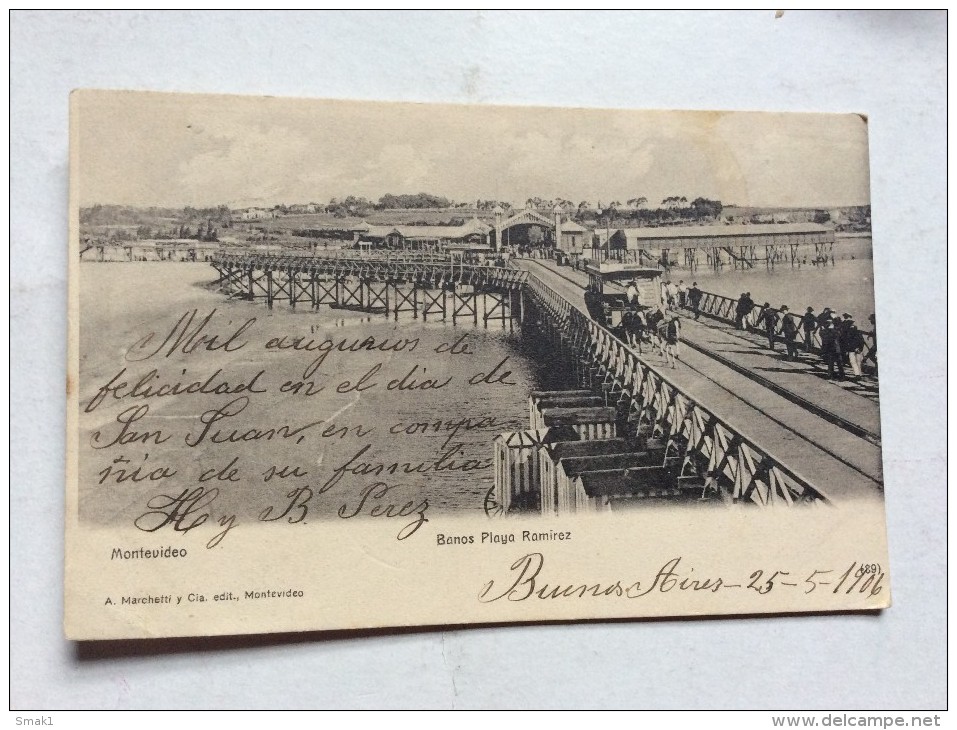 Mil augurios de
felicidad en el dia de
San Juan, en compa
ñia de su familia
H y B Perez
Montevideo
Banos Playa Ramirez
(89)
A. Marchetti y Cia. edit., Montevideo
Buenos Aires - 25 - 5 - 1906
Smak1
www.delcampe.net